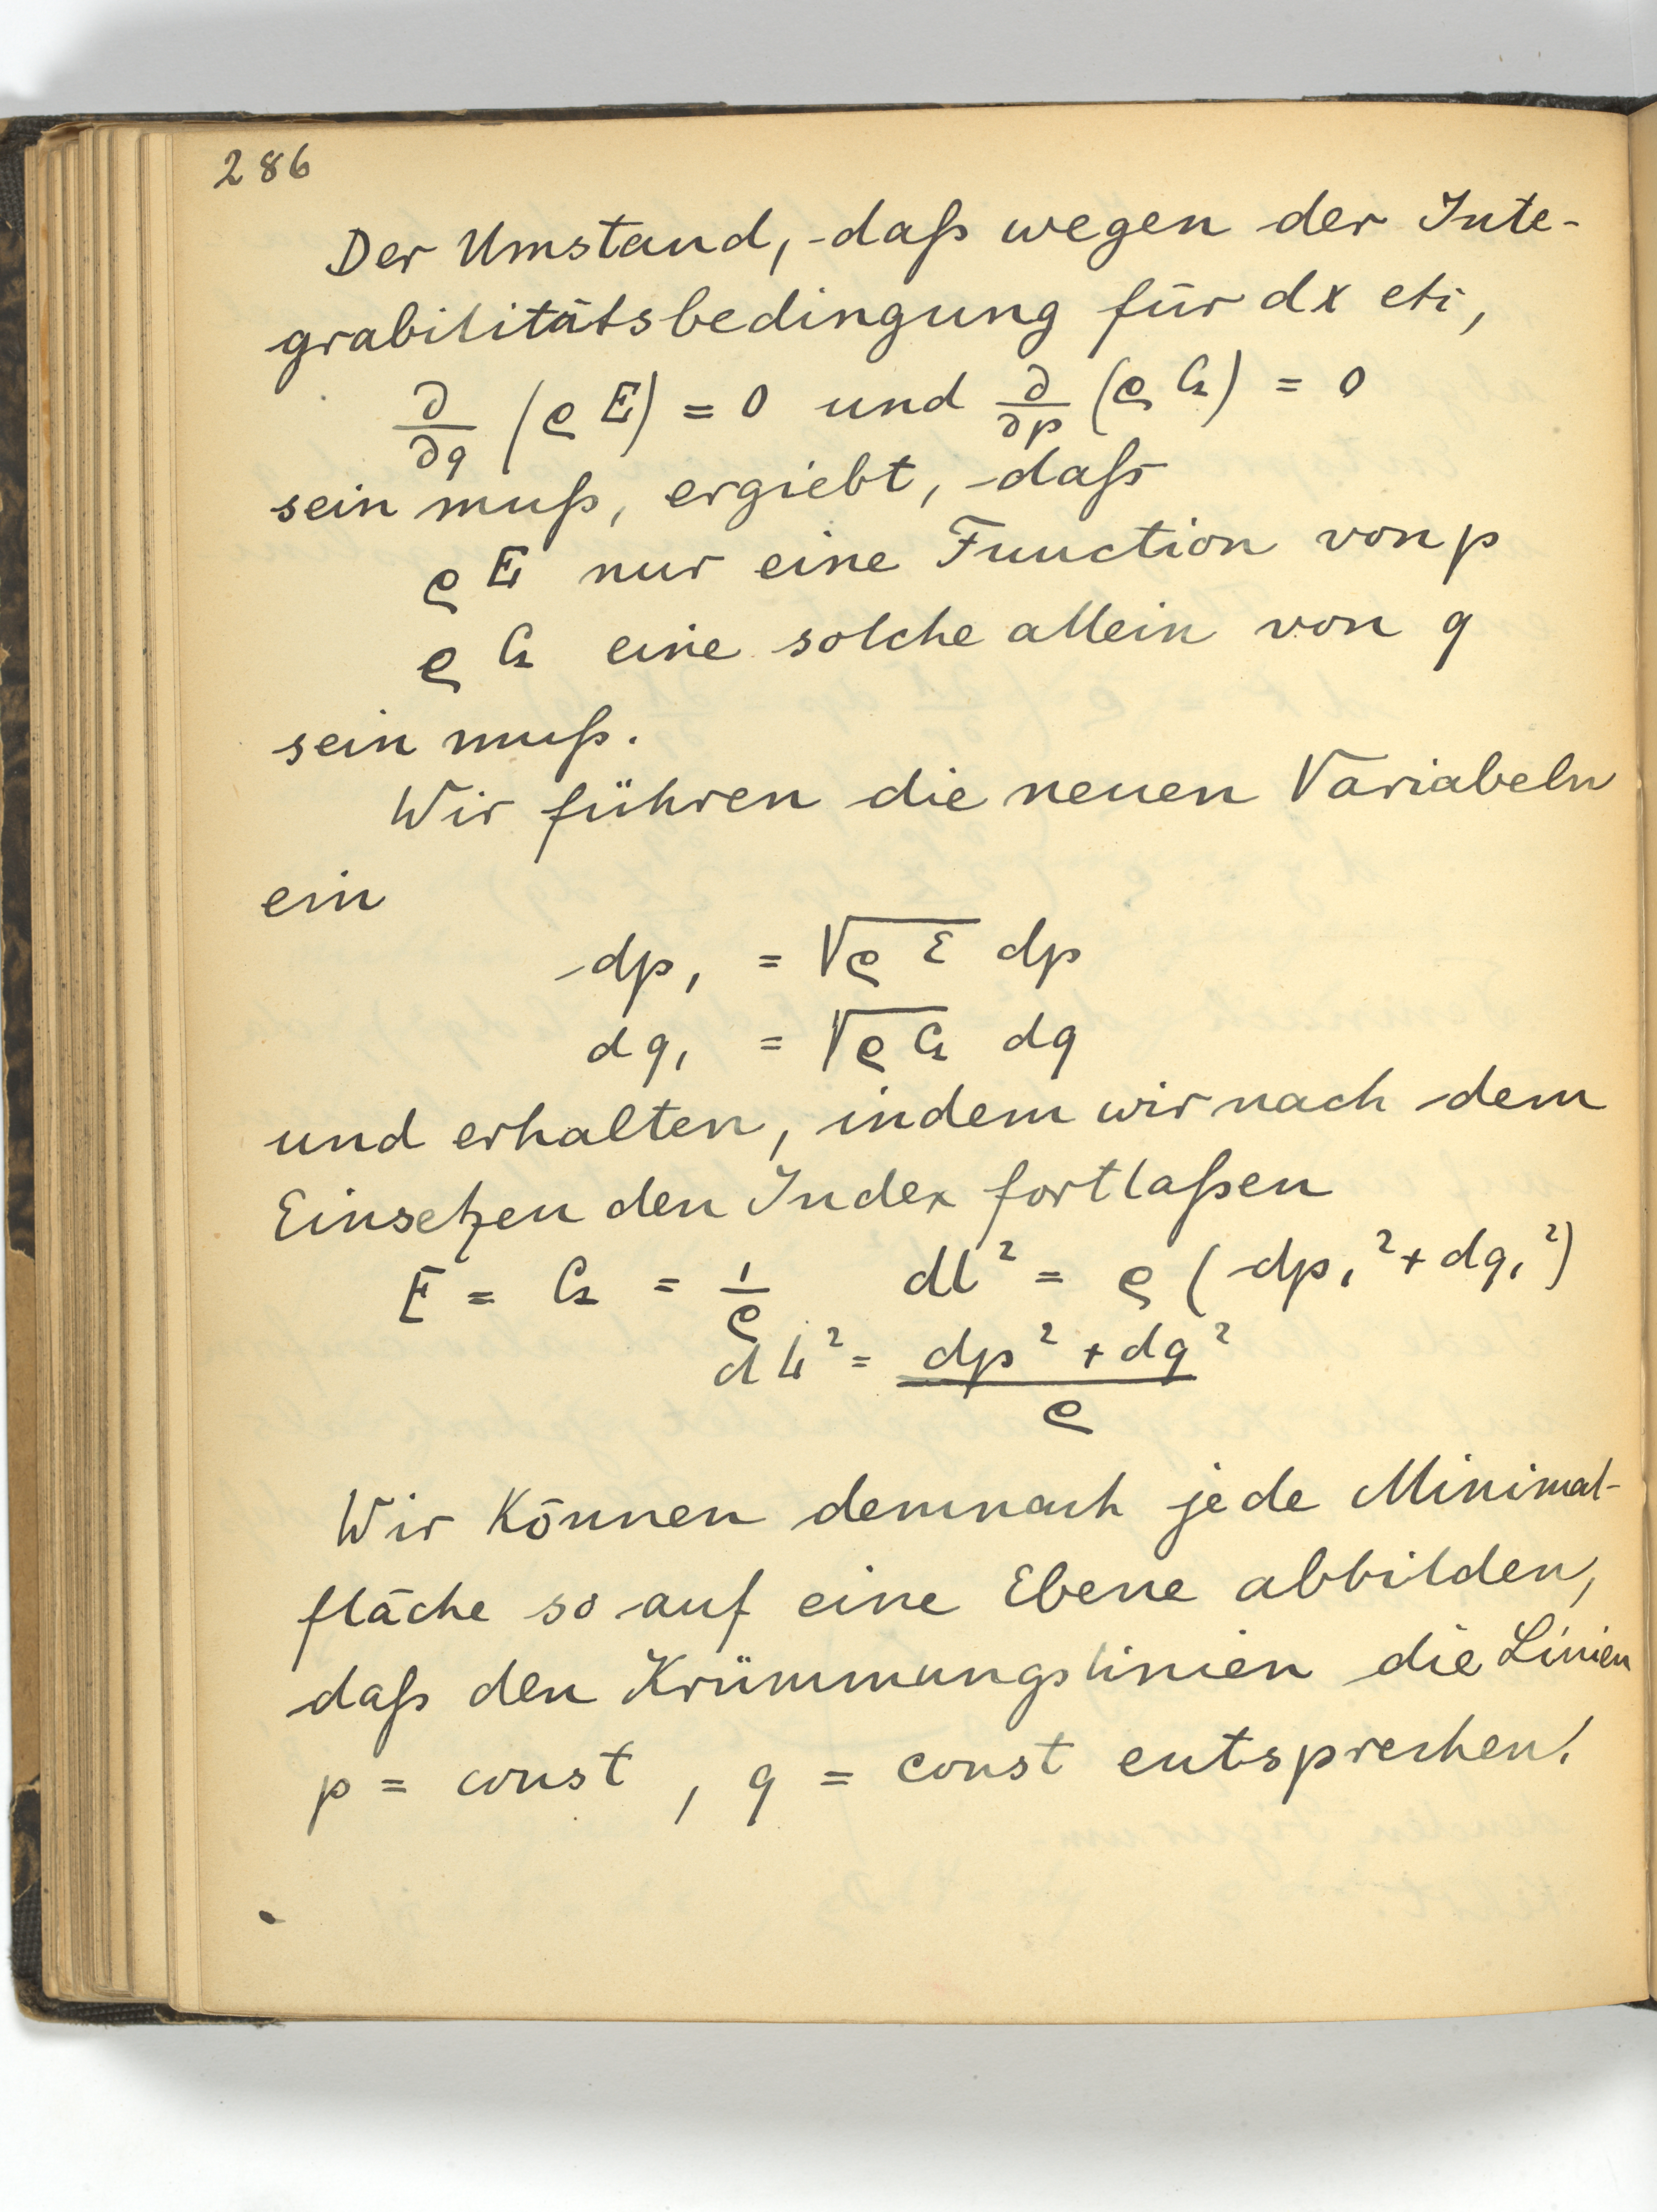 286
Der Umstand, daß wegen der Inte-
grabilitätsbedingung für dx etc,
∂/∂q (ϱ E) = 0 und ∂/∂p (ϱ G) = 0
sein muß, ergiebt, daß
ϱ E nur eine Function von p
ϱ G eine solche allein von q
sein muß.
Wir führen die neuen Variabeln
ein
dp₁ = √(ϱ E) dp
dq₁ = √(ϱ G) dq
und erhalten, indem wir nach dem
Einsetzen den Index fortlaßen
E = G = 1/ϱ dl² = ϱ (dp₁² + dq₁²)
dL² = (dp² + dq²)/ϱ
Wir können demnach jede Minimal-
fläche so auf eine Ebene abbilden,
daß den Krümmungslinien die Linien
p = const, q = const entsprechen!